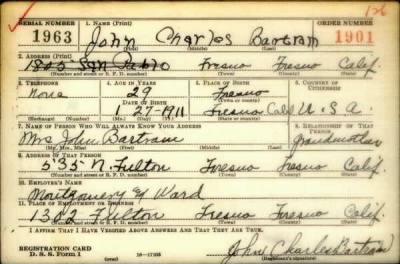 SERIAL NUMBER 1. NAME (Print) ORDER NUMBER
1963 John Charles Bartram 1901
(First) (Middle) (Last)
2. ADDRESS (Print)
1805 San Pablo Fresno Fresno Calif.
(Number and street or R. F. D. number) (Town) (County) (State)
3. TELEPHONE 4. AGE IN YEARS 5. PLACE OF BIRTH 6. COUNTRY OF CITIZENSHIP
None 29 Fresno
DATE OF BIRTH (Town or county)
1 27-1911 Fresno Calif U.S.A.
(Exchange) (Number) (Mo.) (Day) (Yr.) (State or country)
7. NAME OF PERSON WHO WILL ALWAYS KNOW YOUR ADDRESS 8. RELATIONSHIP OF THAT PERSON
Mrs John Bartram Grandmother
(Mr., Mrs., Miss) (First) (Middle) (Last)
9. ADDRESS OF THAT PERSON
535 N. Fulton Fresno Fresno Calif.
(Number and street or R. F. D. number) (Town) (County) (State)
10. EMPLOYER'S NAME
Montgomery Ward
11. PLACE OF EMPLOYMENT OR BUSINESS
1302 Fulton Fresno Fresno Calif.
(Number and street or R. F. D. number) (Town) (County) (State)
I AFFIRM THAT I HAVE VERIFIED ABOVE ANSWERS AND THAT THEY ARE TRUE.
REGISTRATION CARD
D. S. S. FORM 1 16-17105 John Charles Bartram
(Registrant's signature)